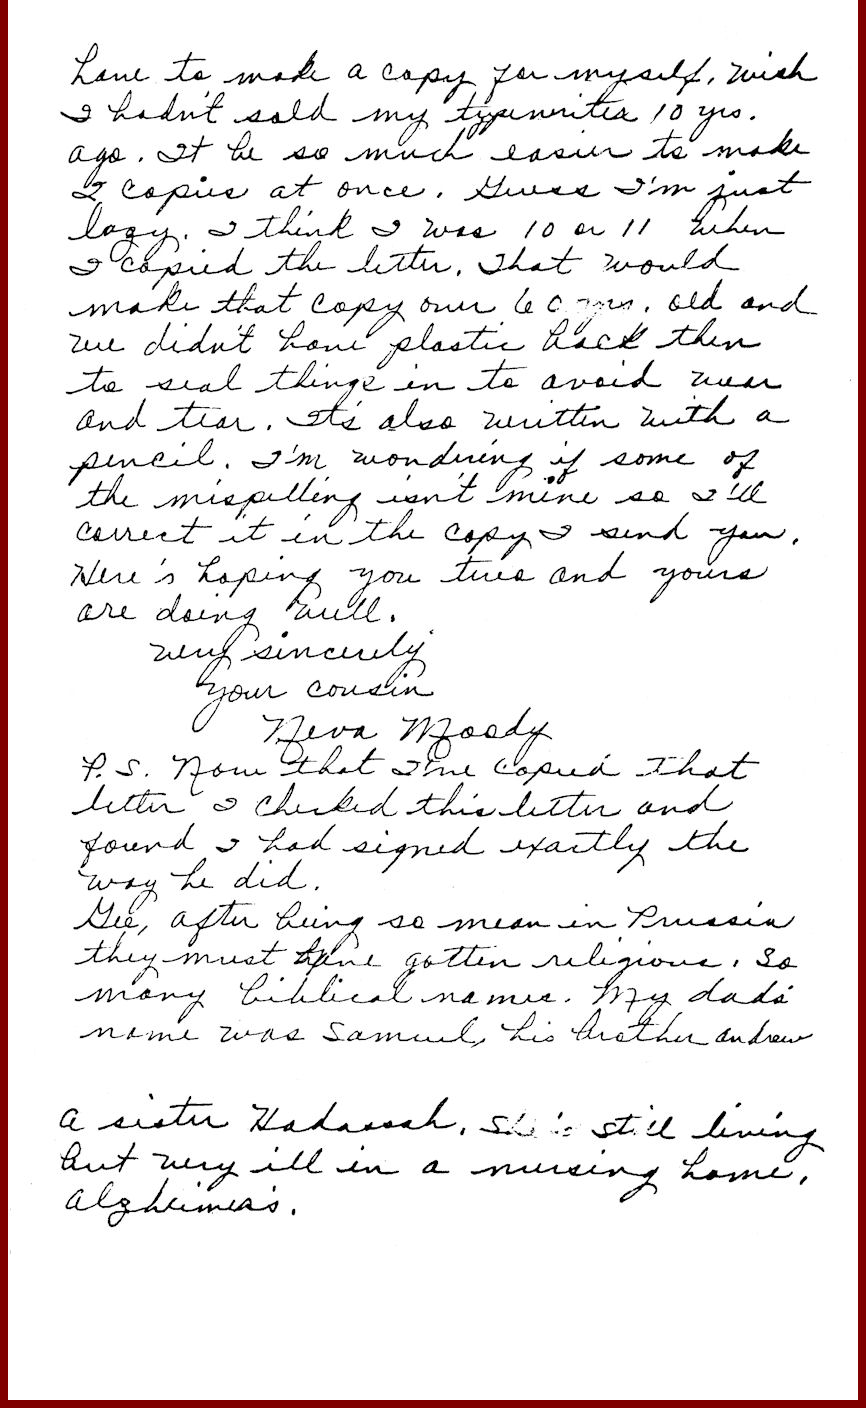 have to make a copy for myself. Wish
I hadn't sold my typewriter 10 yrs.
ago. It be so much easier to make
2 copies at once. Guess I'm just
lazy. I think I was 10 or 11 when
I copied the letter. That would
make that copy over 60 yrs. old and
we didn't have plastic back then
to seal things in to avoid wear
and tear. It's also written with a
pencil. I'm wondering if some of
the mispelling isn't mine so I'll
correct it in the copy I send you.
Here's hoping you two and yours
are doing well.
Very sincerely
your cousin
Neva Moody
P.S. Now that I've copied that
letter I checked this letter and
found I had signed exactly the
way he did.
Gee, after being so mean in Prussia
they must have gotten religious. So
many biblical names. My dads
name was Samuel, his brother Andrew
a sister Hadassah. She's still living
but very ill in a nursing home.
Alzheimers.